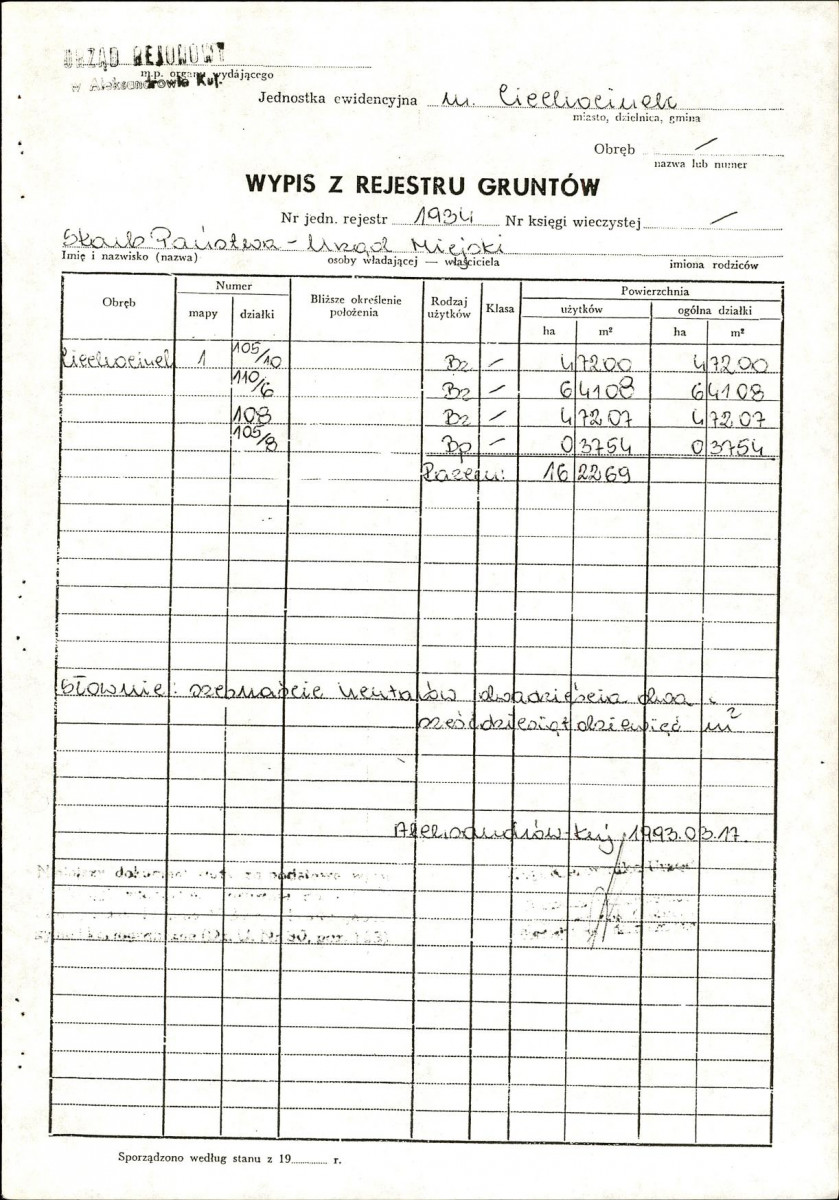 URZĄD REJONOWY
m.p. organu wydającego
w Aleksandrowie Kuj.
Jednostka ewidencyjna m. Ciechocinek
miasto, dzielnica, gmina
Obręb /
nazwa lub numer
WYPIS Z REJESTRU GRUNTÓW
Nr jedn. rejestr 1934 Nr księgi wieczystej /
Skarb Państwa - Urząd Miejski
Imię i nazwisko (nazwa) osoby władającej — właściciela imiona rodziców
Obręb Numer Bliższe określenie położenia Rodzaj użytków Klasa Powierzchnia
mapy działki użytków ogólna działki
ha m² ha m²
Ciechocinek 1 105/10 Bz — 4 7200 4 7200
110/6 Bz — 6 4108 6 4108
108 Bz — 4 7207 4 7207
105/8 Bp — 0 3754 0 3754
Razem: 16 2269
Słownie: szesnaście hektarów dwadzieścia dwa i
sześćdziesiąt dziewięć m²
Aleksandrów-Kuj. 1993.03.17.
Sporządzono według stanu z 19 r.